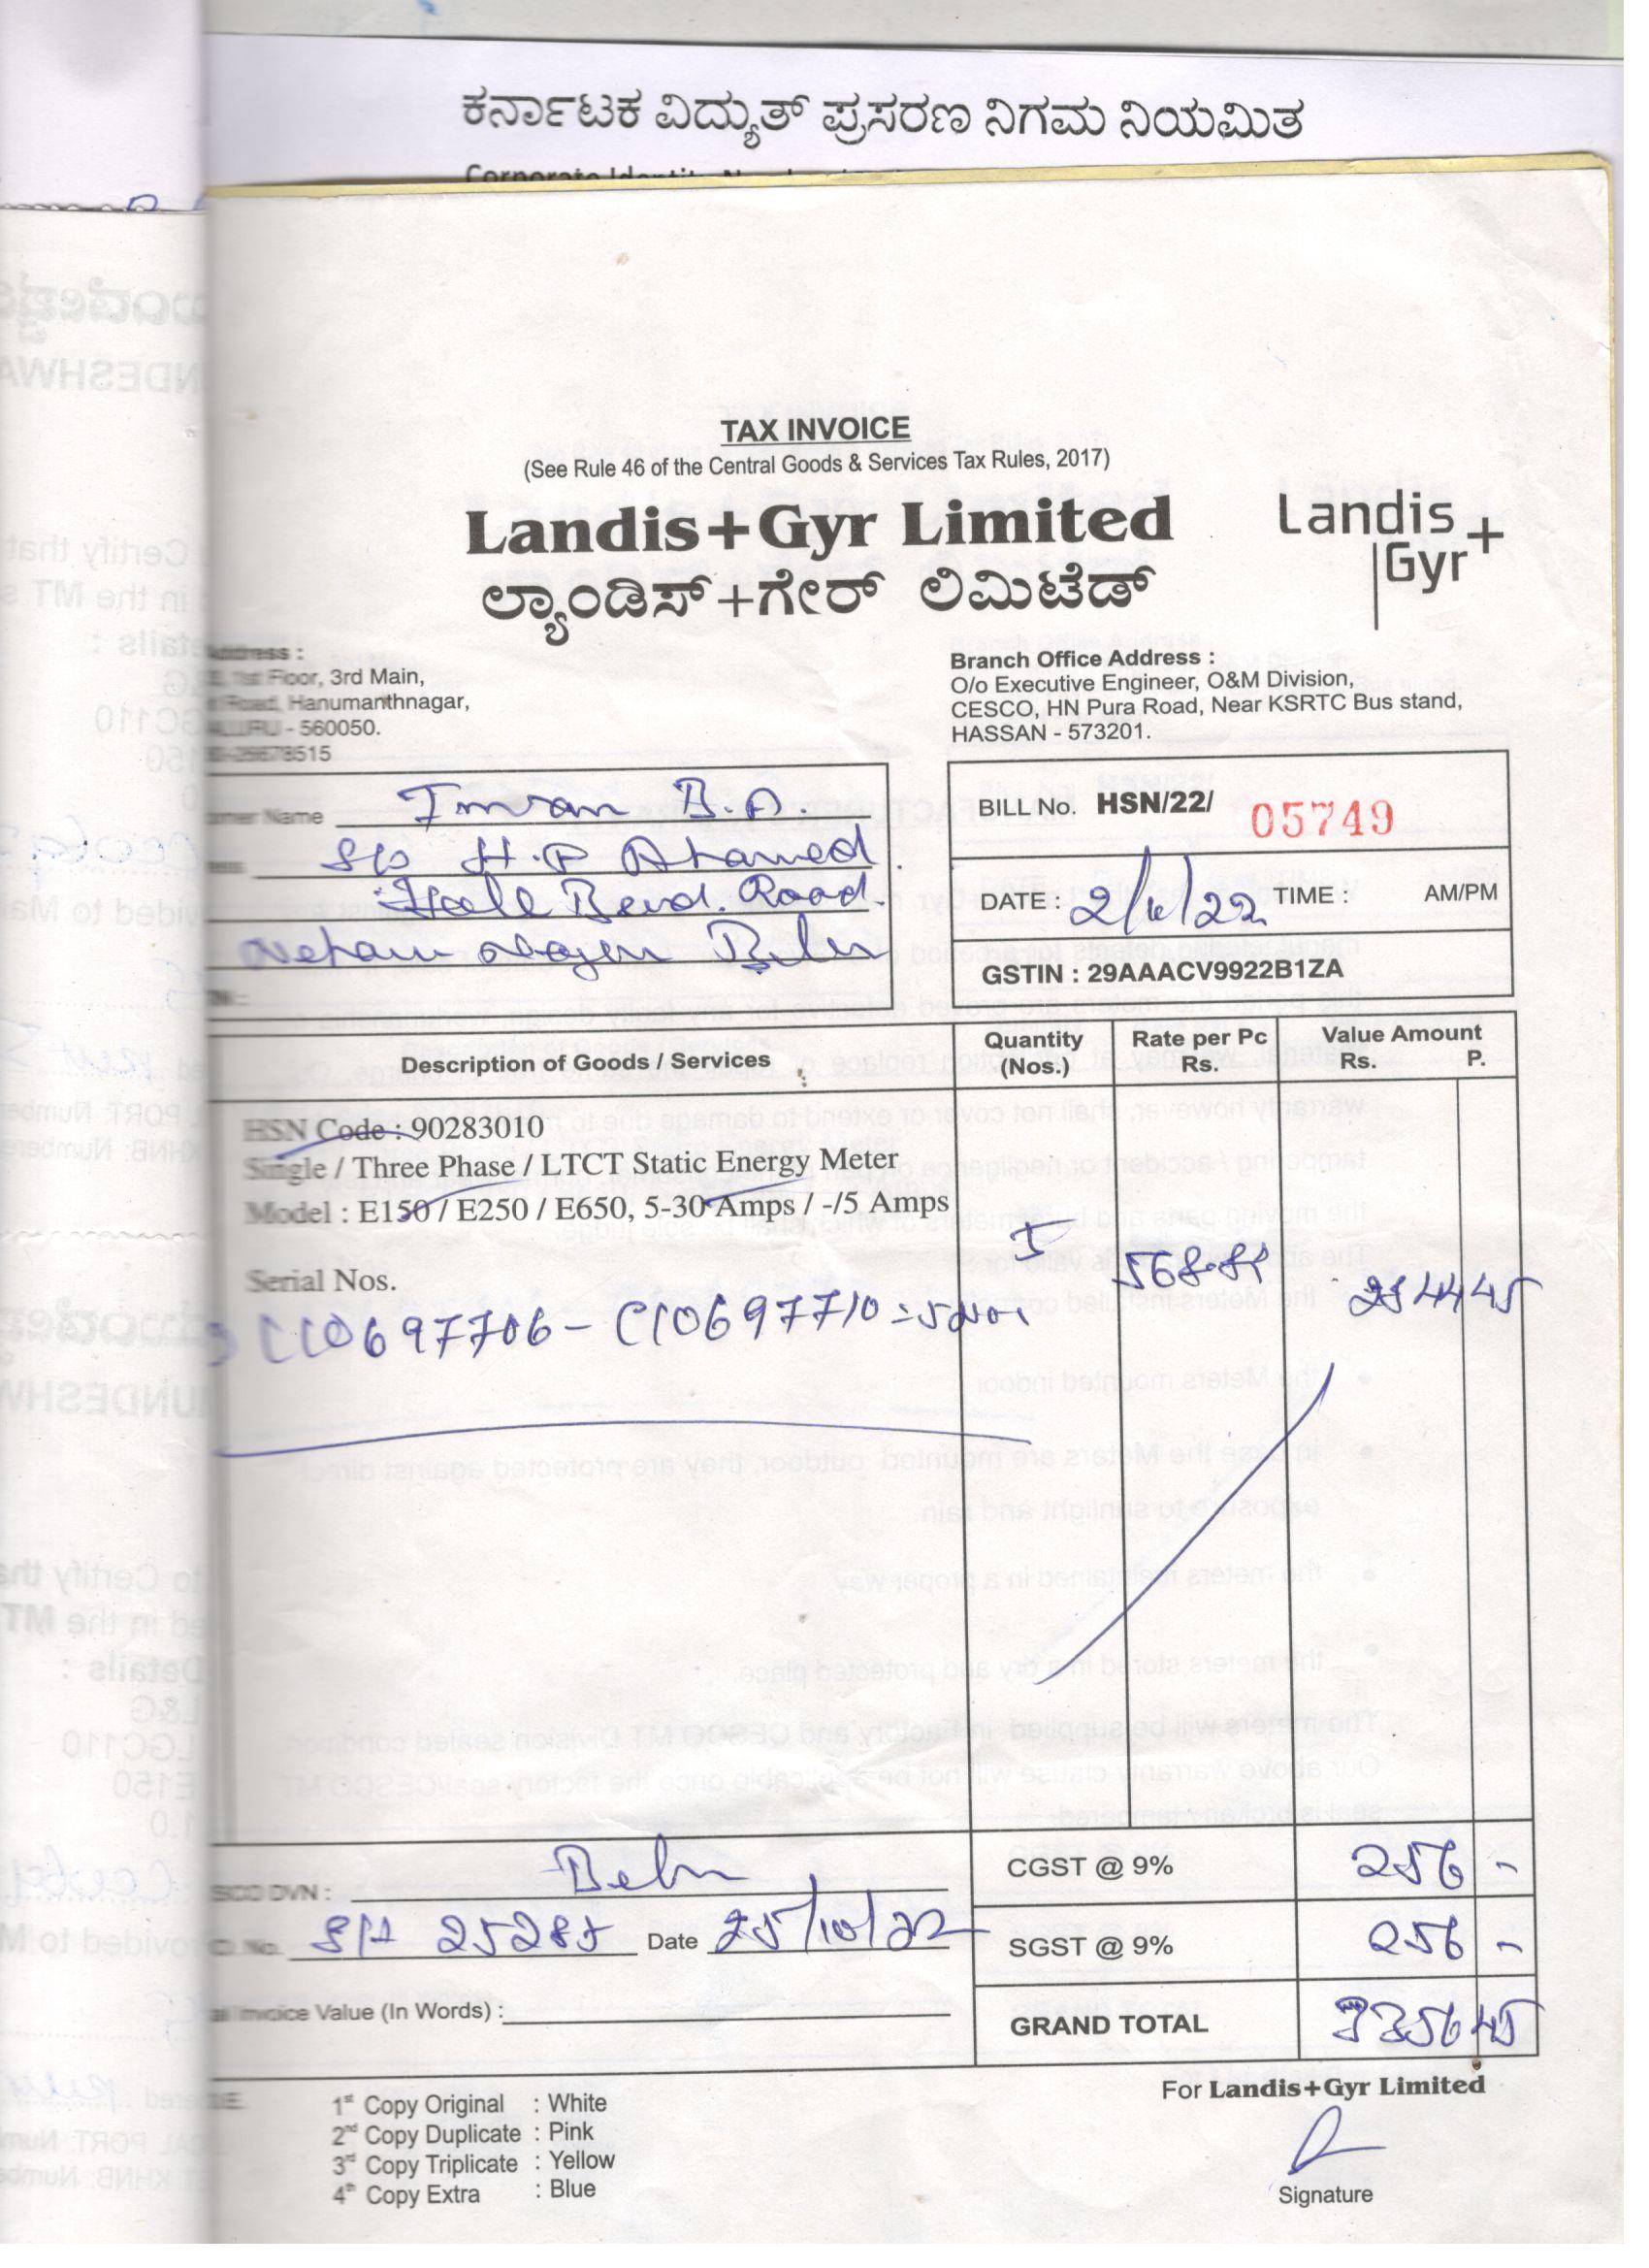 ಕರ್ನಾಟಕ ವಿದ್ಯುತ್ ಪ್ರಸರಣ ನಿಗಮ ನಿಯಮಿತ
TAX INVOICE
(See Rule 46 of the Central Goods & Services Tax Rules, 2017)
Landis+Gyr Limited
Landis+Gyr
ಲ್ಯಾಂಡಿಸ್+ಗೇರ್ ಲಿಮಿಟೆಡ್
Address :
1st Floor, 3rd Main,
Road, Hanumanthnagar,
- 560050.
Branch Office Address :
O/o Executive Engineer, O&M Division,
CESCO, HN Pura Road, Near KSRTC Bus stand,
HASSAN - 573201.
Name Imran B.A.
S/o H.P Ahamed
Road
Belur
BILL No. HSN/22/ 05749
DATE : 2/11/22 TIME : AM/PM
GSTIN : 29AAACV9922B1ZA
Description of Goods / Services
Quantity (Nos.)
Rate per Pc Rs.
Value Amount Rs. P.
HSN Code : 90283010
Single / Three Phase / LTCT Static Energy Meter
Model : E150 / E250 / E650, 5-30 Amps / -/5 Amps
Serial Nos.
C10697706 - C10697710 = 5 Nos
5
568.89
2844 45
DVN : Belur
No. 25285 Date 25/10/22
Invoice Value (In Words) :
CGST @ 9% 256 -
SGST @ 9% 256 -
GRAND TOTAL 3356 45
1st Copy Original : White
2nd Copy Duplicate : Pink
3rd Copy Triplicate : Yellow
4th Copy Extra : Blue
For Landis+Gyr Limited
Signature